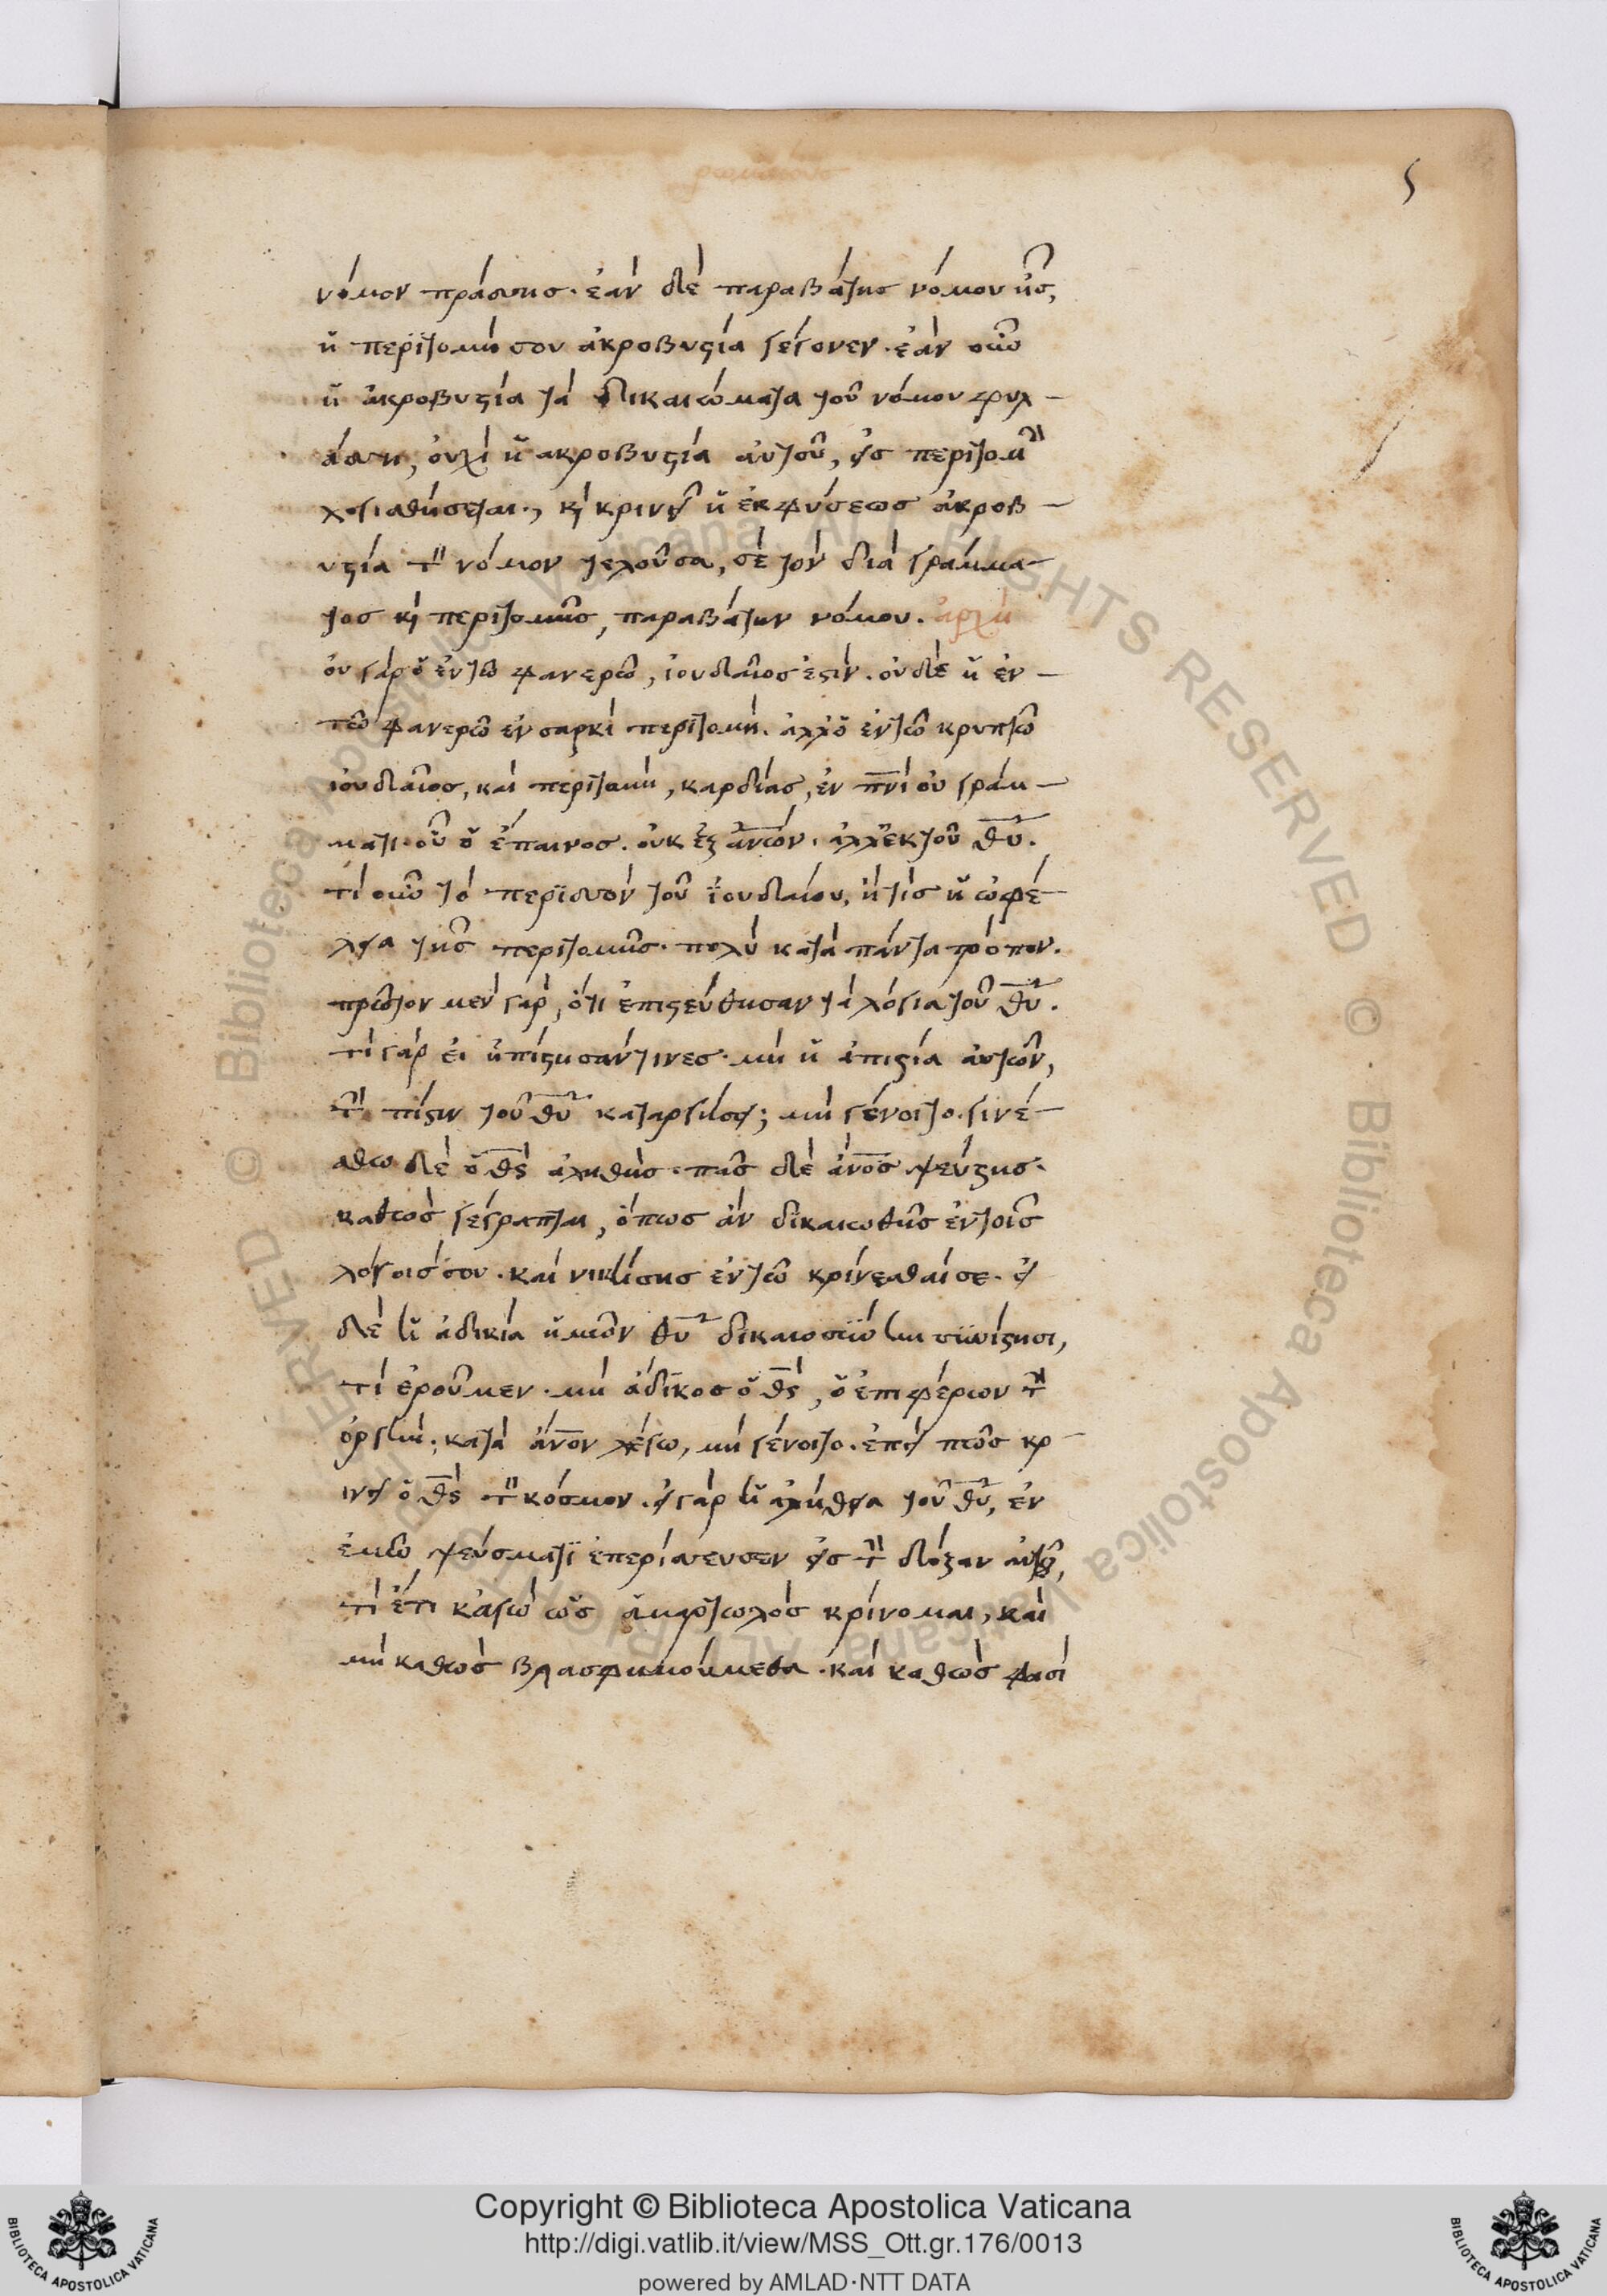 5
νόμον πράσσης· ἐὰν δὲ παραβάτης νόμου ἦς,
ἡ περϊτομή σου ἀκροβυστία γέγονεν· ἐὰν οὖν
ἡ ἀκροβυστία τὰ δικαιώματα τοῦ νόμου φυλ-
άσση, οὐχὶ ἡ ακροβυστία αὐτοῦ, εἰς περιτομὴ
λογισθήσεται·, κὶ κρινεῖ ἡ ἐκφύσεως ἀκροβ-
υστία τὸν νόμον τελοῦσα, σὲ τὸν διὰ γράμμα-
τος κὶ περιτομῆς, παραβάτην νόμου. ἀρχὴ
ὀυ γὰρ ὁ ἐν τῶ φανερῶ, ἰουδαῖος ἐστὶν· οὐδὲ ἡ ἐν-
τῶ φανερῶ ἐν σαρκὶ περϊτομή. ἀλλὁ ἐν τῶ κρυπτῶ
ἰουδαῖος, καὶ περιτομὴ, καρδίας, ἐν π̅ν̅ὶ οὐ γράμ-
ματι· οὗ ὁ ἔπαινος· οὐκ ἐξ ἀν̅ῶν· ἀλλ' ἐκ τοῦ θ̅υ̅.
τί οὖν τὸ περϊσσὸν τοῦ ἰουδαίου, ἢ τίς ἡ ὠφέ-
λεια τῆς περιτομῆς· πολὺ κατὰ πάντα τρόπον.
πρῶτον μὲν γὰρ, ὅτι ἐπιστεύθησαν τὰ λόγια τοῦ θ̅υ̅.
τί γὰρ ἐι ἠπίστησάν τινες· μὴ ἡ ἀπιστία ἀυτῶν,
τὴν πίστιν τοῦ θ̅υ̅ καταργήσει; μὴ γένοιτο. γινέ-
σθω δὲ ὁ θ̅ς̅ ἀληθὴς· πᾶς δὲ ἄν̅ο̅ς ψεύστης·
καθὼς γέγραπται, ὅπως ἂν δικαιωθῆς ἐν τοῖς
λόγοις σου· καὶ νικήσης ἐν τῶ κρίνεσθαί σε· εἰ
δὲ ἡ ἀδικία ἡμῶν θ̅υ̅ δικαιοσϋνην συνίστησι,
τί ἐροῦμεν· μὴ ἄδϊκος ὁ θ̅ς̅, ὁ ἐπιφέρων τὴν
ὀργήν; κατὰ ἄν̅ον λέγω, μὴ γένοιτο· ἐπεὶ πῶς κρ-
ινεῖ ὁ θ̅ς̅ τὸν κόσμον. εἰ γὰρ ἡ ἀλήθεια τοῦ θ̅υ̅, ἐν
ἐμῶ ψεύσματϊ ἐπερίσσευσεν εἰς τὴν δόξαν αὐτοῦ,
τί ἔτι κἀγὼ ὡς ἁμαρτωλὸς κρίνομαι, καὶ
μὴ καθὼς βλασφημούμεθα· καὶ καθὼς φασί
Copyright © Biblioteca Apostolica Vaticana
http://digi.vatlib.it/view/MSS_Ott.gr.176/0013
powered by AMLAD·NTT DATA